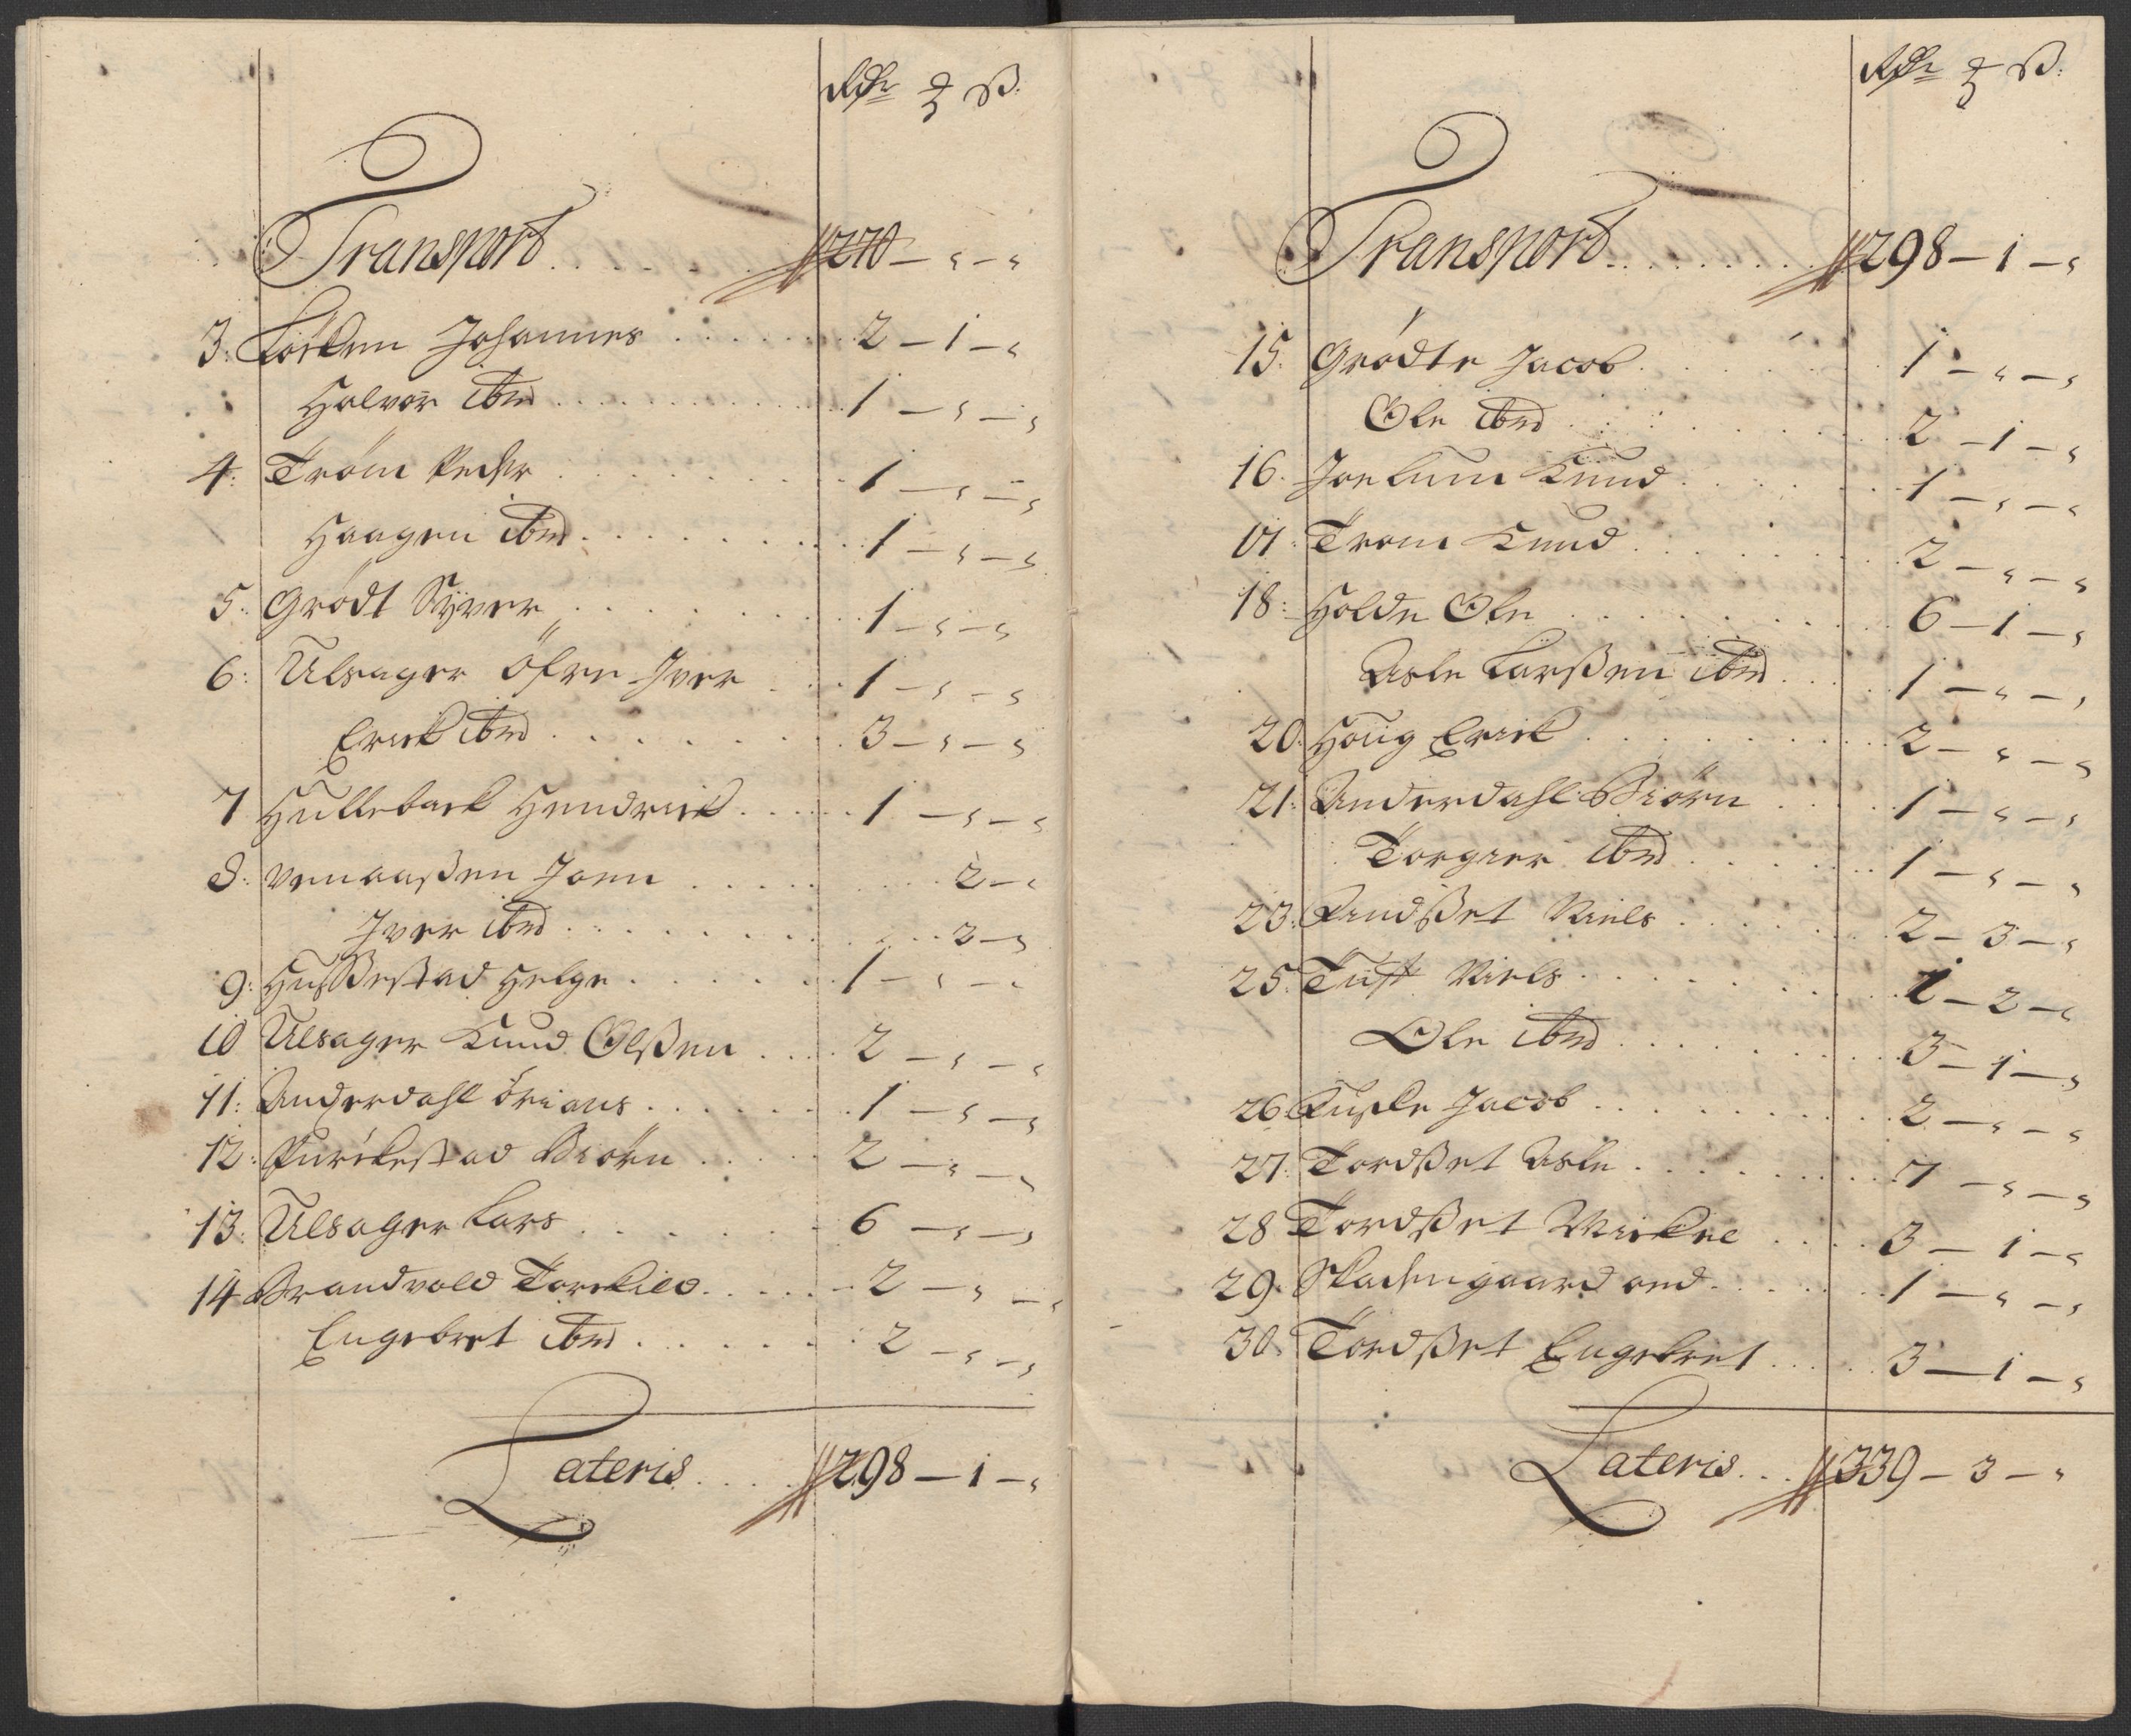 Rdr ℥ ß:
Transport . . . . . . 270 - „ - „
3: Löcken Johannes . . . . . 2 - 1 - „
Halvor ibid . . . . . . 1 - „ - „
4: Tröm Peder . . . . . . 1 - „ - „
Haagen ibid . . . . . . 1 - „ - „
5: Grödt Syver . . . . . . 1 - „ - „
6: Ulsager öfre Iver . . . 1 - „ - „
Erick ibid . . . . . . 3 - „ - „
7 Hulleback Hendrick . . . . 1 - „ - „
8: Venaaßen Joen . . . . . . 2 - „
Iver ibid . . . . . . 2 - „
9: Hußestad Helge . . . . . . 1 - „ - „
10 Ulsager Knud Olßen . . . . 2 - „ - „
11: Anderdahl örians . . . . . 1 - „ - „
12: Biörn . . . . . 2 - „ - „
13: Ulsager Lars . . . . . . 6 - „ - „
14 Brandvold Torckild . . . . 2 - „ - „
Engebret ibid . . . . . . 2 - „ - „
Lateris . . . . 298 - 1 - „
Rdr ℥ ß:
Transport . . . . . . 298 - 1 - „
15: Grödte Jacob . . . . . . 1 - „ - „
Ole ibid . . . . . . 2 - 1 - „
16. Knud . . . . . . 1 - „ - „
17: Trom Knud . . . . . . 2 - „ - „
18: Holde Ole . . . . . . 6 - 1 - „
Asle Larßen ibid . . . . 1 - „ - „
20. Houg Erick . . . . . . 2 - „ - „
21: Anderdahl Biörn . . . . . 1 - „ - „
Torgier ibid . . . . . . 1 - „ - „
23: Rindßet Niels . . . . . . 2 - 3 - „
25. Tuft Niels . . . . . . 1 - 2 - „
Ole ibid . . . . . . 3 - 1 - „
26 Jacob . . . . . . 2 - „ - „
27. Tordßet Asle . . . . . . 7 - „ - „
28 Tordßet Mickel . . . . 3 - 1 - „
29. Skadengaard and . . . . . 1 - „ - „
30. Tordßet Engebret . . . . 3 - 1 - „
Lateris . . . 339 - 3 - „